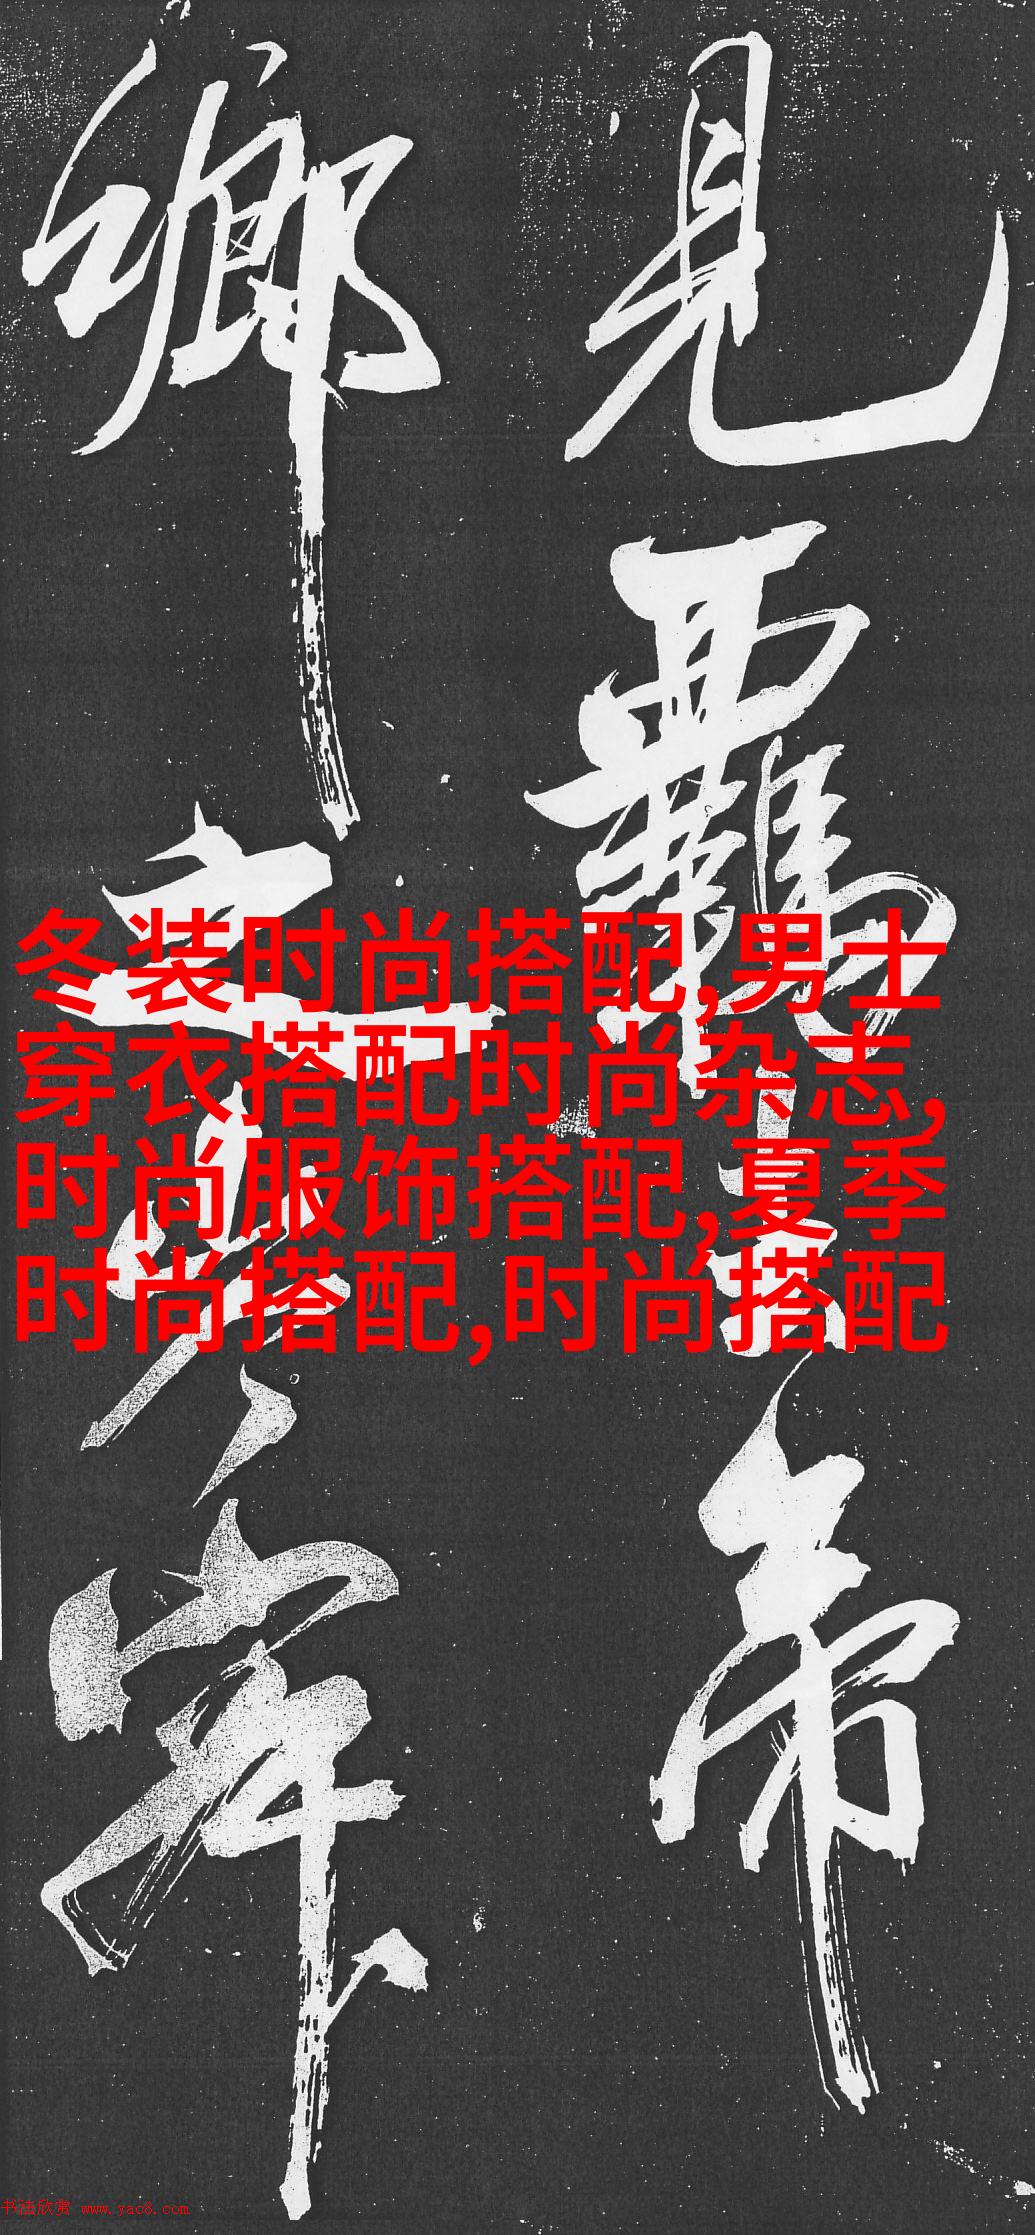 見羈帝
鄉之
冬装时尚搭配,男士
穿衣搭配时尚杂志,
时尚服饰搭配,夏季
时尚搭配,时尚搭配
书法欣赏 www.yac8.com